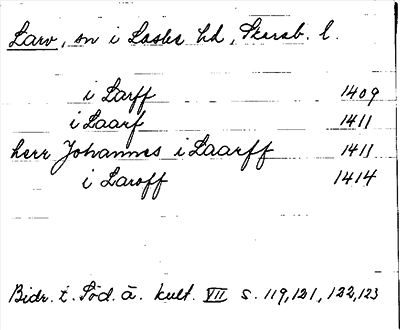 Larv, sn i Laske hd, Skarab. l.
i Larff 1409
i Laarf 1411
herr Johannes i Laarff 1411
i Laroff 1414
Bidr. t. Söd. ä. kult. VII s. 119, 121, 122, 123